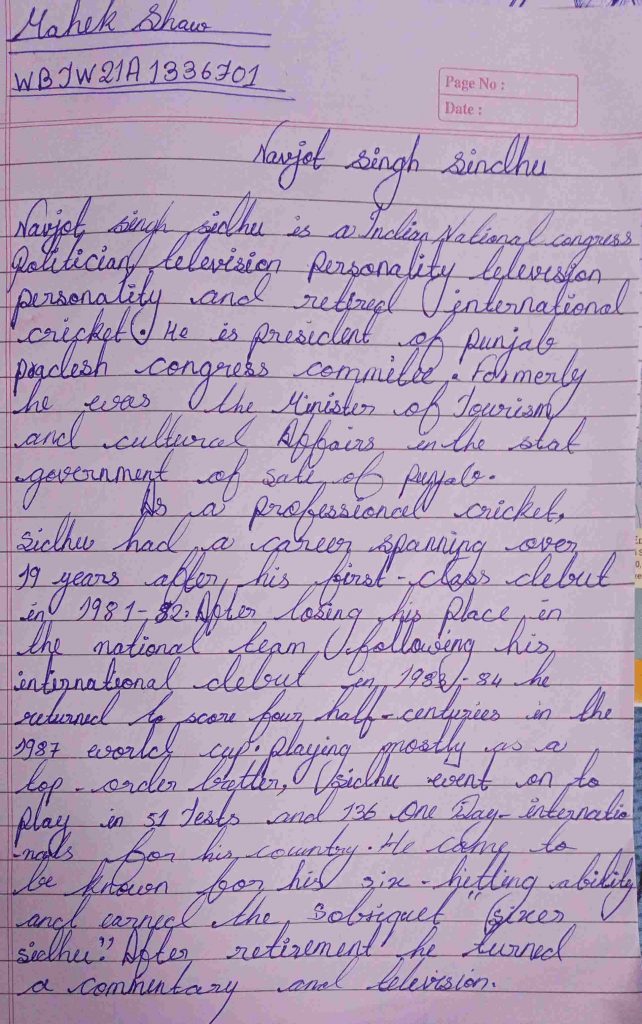 Mahek Shaw
WBJW21A1336701
Page No :
Date :
Navjot singh sindhu
Navjot singh sidhu is a Indian National congress
Politician, television personality television
personality and retired international
cricket. He is president of punjab
pradesh congress commitee. Formerly
he was the Minister of Tourism
and cultural Affairs in the stat
government of sate of punjab.
As a professional cricket,
Sidhu had a career spanning over
19 years after his first-class debut
in 1981-82. After losing his place in
the national team, following his
international debut in 1983-84 he
returned to score four half-centuries in the
1987 world cup. playing mostly as a
top-order batter, sidhu event on to
play in 51 Tests and 136 One Day-internatio
-nals for his country. He came to
be known for his six-hitting ability
and earned the Sobsiquet "sixer
sidhu." After retirement he turned
a commentary and television.